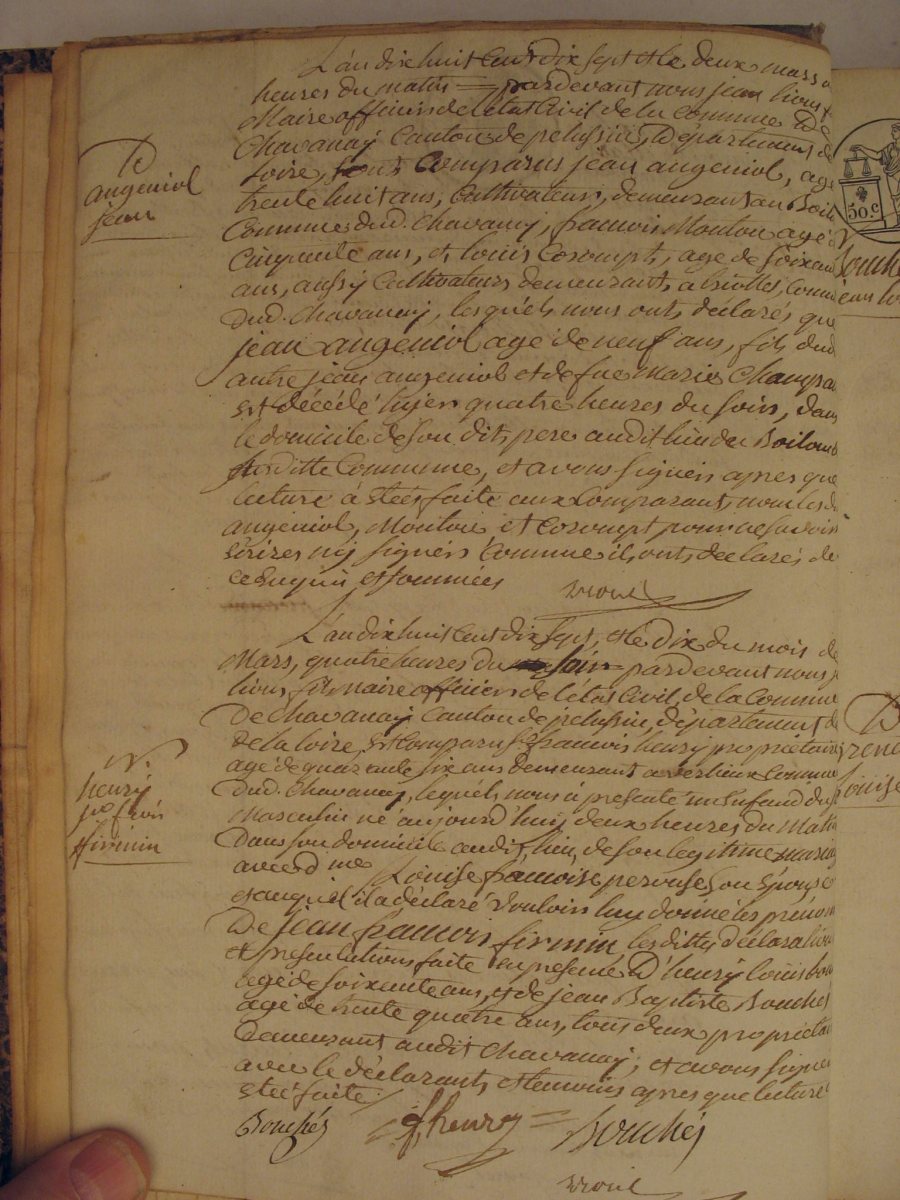 L'an dix huit cent dix sept et le deux mars a
heures du matin = pardevant nous jean
Maire officier de l'état Civil de la commune De
Chavanay Canton de pelussin, Département de
Loire, sont Comparus jean angeniol, agé
trente huit ans, Cultivateur, demeurant au
Commune dud. Chavanay, francois Mouton agé
Cinquente ans, et louis Corompt, age de soixan
ans, aussy Cultivateurs demeurants a Comm
Dud. Chavanay, lesquels nous ont déclarés que
jean angeniol agé de neuf ans, fils dud
autre jean angeniol et de fue marie Champa
est décédé hyer quatre heures du soir, dans
le domicile de son dit pere audit lieu de
ditte Commune, et avons signér apres que
lecture à etées faite aux Comparants, nommés
angeniol, Mouton et Corompt pour ne savoir
ecrires ny signér Comme ils onts declarés de
ce Enquis et sommées
D
angeniol
jean
L'an dix huit cent dix sept, et le Dix du mois de
Mars, quatre heures du soir = pardevant nous
Maire officier de l'état Civil, de la Commune
De Chavanay Canton de pelussin, Département de
de la loire, est Comparu francois henry propriétaire
agé de quarante six ans demeurant a verlieux Commune
Dud. Chavanay, lequel nous à présenté un Enfand du
Masculin né aujourd'huy deux heures du Matin
Dans son domicile audit lieu, de son legitime mariage
avec d me Louise francoise pervuse son Epouse
et auquel il a déclaré Vouloir luy donné les prénoms
De jean francois firmin, les dittes déclaration
et présentations faite en presence D'henry louis
agé de soixente ans, et de jean Baptiste Bouchet
agé de trente quatre ans, tous deux propriétai
Demeurant audit Chavanay, et avons signé
avec le déclarant et temoins apres que lecture
etée faite
N.
henry
jn frcois
firmin
Bouchés
= f henry =
Bouchés
50.c
Bouche
D
Louise